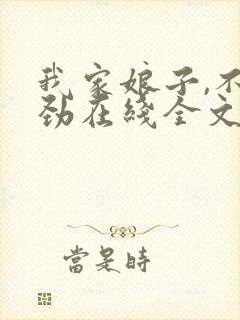 我家娘子,不
劲在线全文
當是時